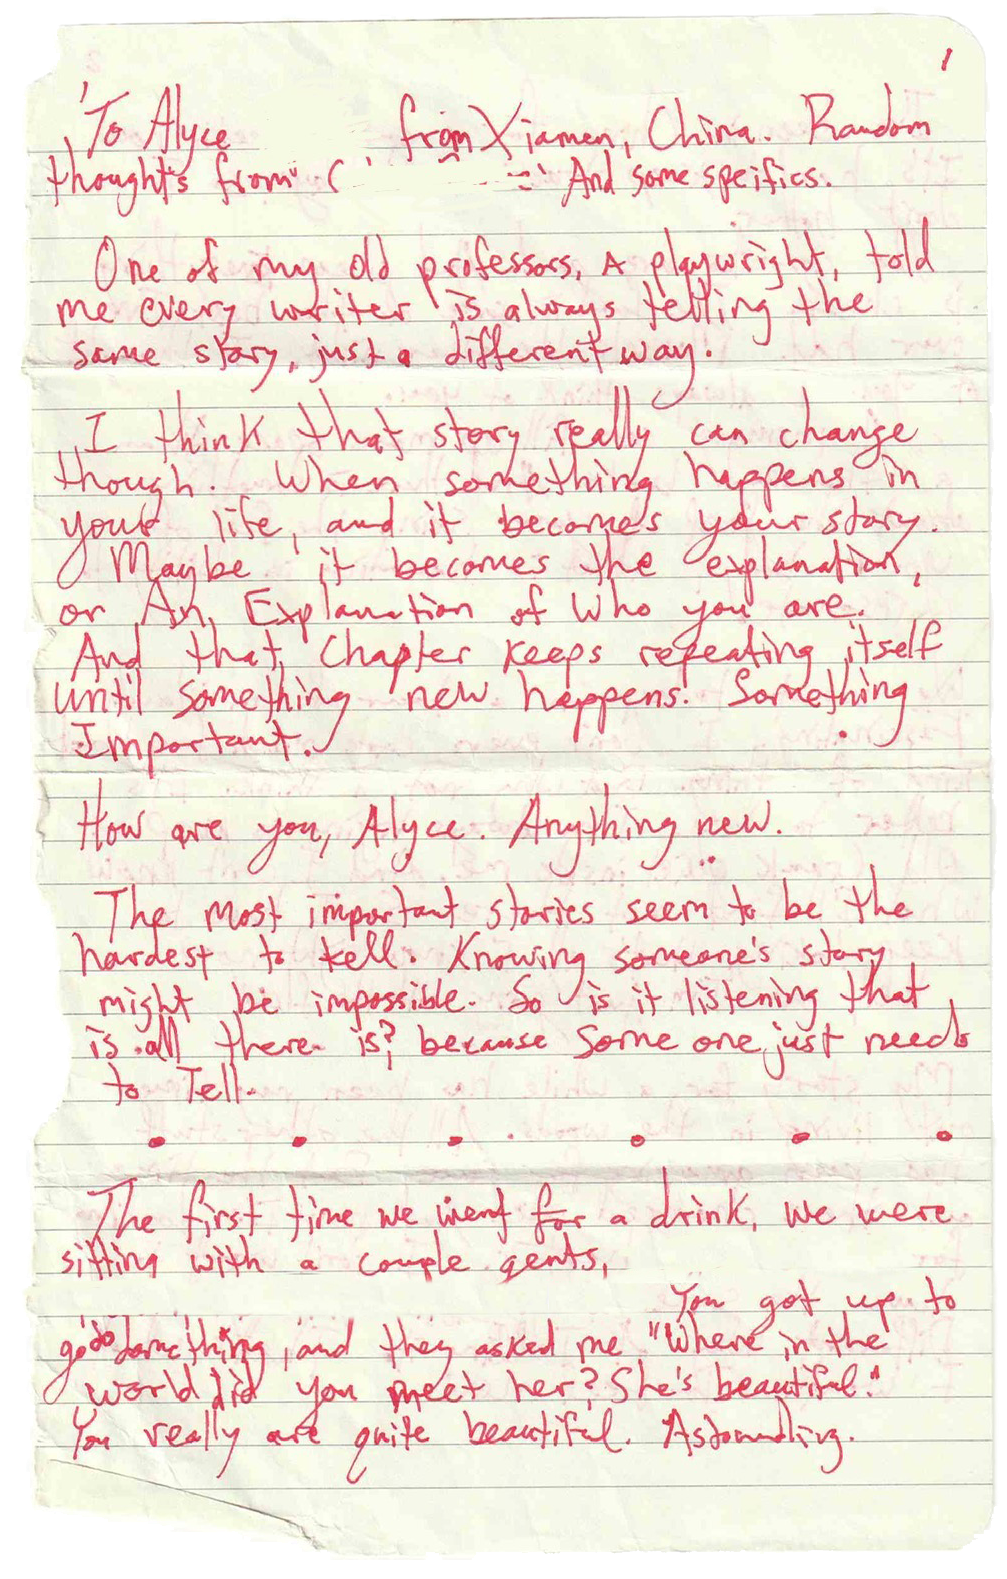 1
To Alyce from Xiamen, China. Random
thoughts from And some speifics.
One of my old professors, A playwright, told
me every writer is always telling the
same story, just a different way.
I think that story really can change
though. When something happens in
your life, and it becomes your story.
Maybe it becomes the explanation,
or An Explanation of Who you are.
And that Chapter keeps repeating itself
until something new happens. Something
Important.
How are you, Alyce. Anything new.
The most important stories seem to be the
hardest to tell. Knowing someone's story
might be impossible. So is it listening that
is all there is? because some one just needs
to Tell.
The first time we went for a drink, we were
sitting with a couple gents,
You got up to
go do something, and they asked me "Where in the
world did you meet her? She's beautiful."
You really are quite beautiful. Astounding.